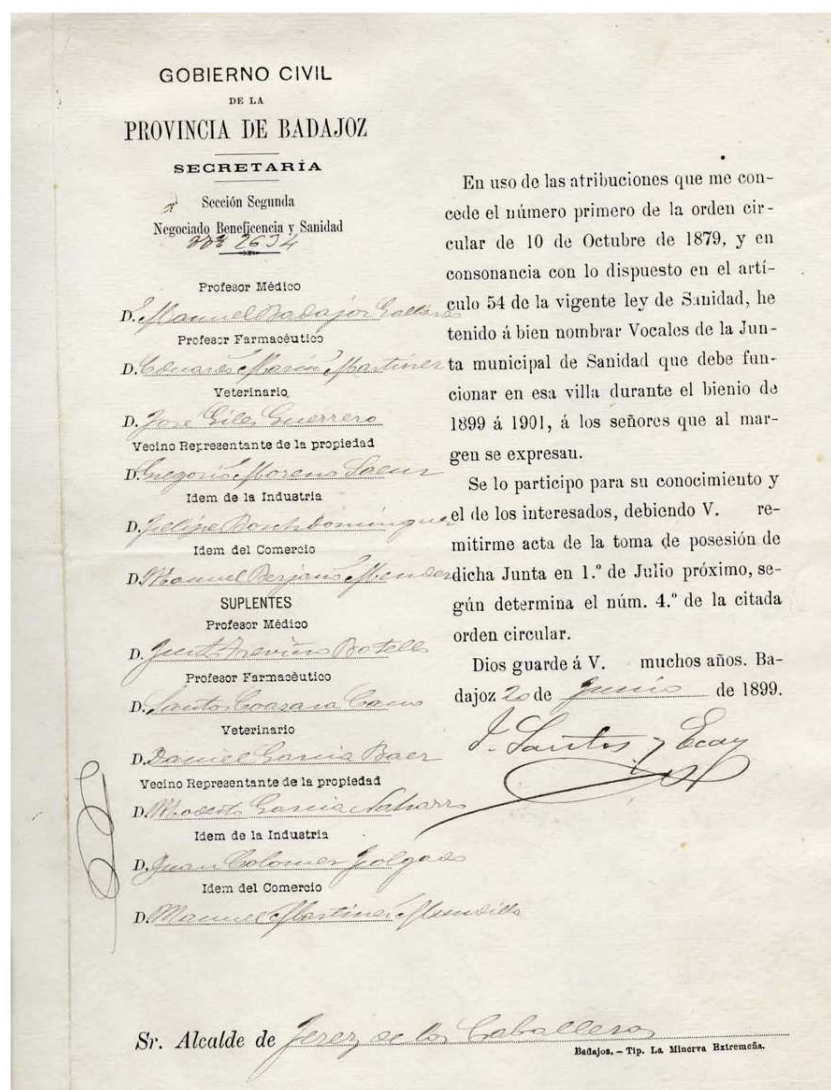 GOBIERNO CIVIL
DE LA
PROVINCIA DE BADAJOZ
SECRETARÍA
Sección Segunda
Negociado Beneficencia y Sanidad
2634
Profesor Médico
D. Manuel Badajoz
Profesor Farmacéutico
D. Eduardo Marín Martínez
Veterinario
D. José Giles Guerrero
Vecino Representante de la propiedad
D. Gregorio Moreno Saenz
Idem de la Industria
D. Felipe Bosch Domínguez
Idem del Comercio
D. Manuel Berjano Mendez
SUPLENTES
Profesor Médico
D. Treviño Botello
Profesor Farmacéutico
D. Santos Cano
Veterinario
D. Daniel Garcia Baer
Vecino Representante de la propiedad
D. Modesto Garcia Naharro
Idem de la Industria
D. Juan Colomer
Idem del Comercio
D. Manuel Martinez
En uso de las atribuciones que me con-
cede el número primero de la orden cir-
cular de 10 de Octubre de 1879, y en
consonancia con lo dispuesto en el artí-
culo 54 de la vigente ley de Sanidad, he
tenido á bien nombrar Vocales de la Jun-
ta municipal de Sanidad que debe fun-
cionar en esa villa durante el bienio de
1899 á 1901, á los señores que al mar-
gen se expresan.
Se lo participo para su conocimiento y
el de los interesados, debiendo V. re-
mitirme acta de la toma de posesión de
dicha Junta en 1.º de Julio próximo, se-
gún determina el núm. 4.º de la citada
orden circular.
Dios guarde á V. muchos años. Ba-
dajoz 20 de Junio de 1899.
J. Santos y Ecay
Sr. Alcalde de Jerez de los Caballeros
Badajoz. – Tip. La Minerva Extremeña.